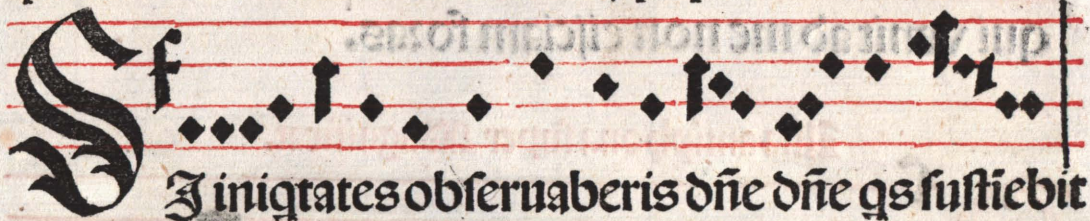 SI iniqtates obseruaberis dñe dñe qs sustiebit